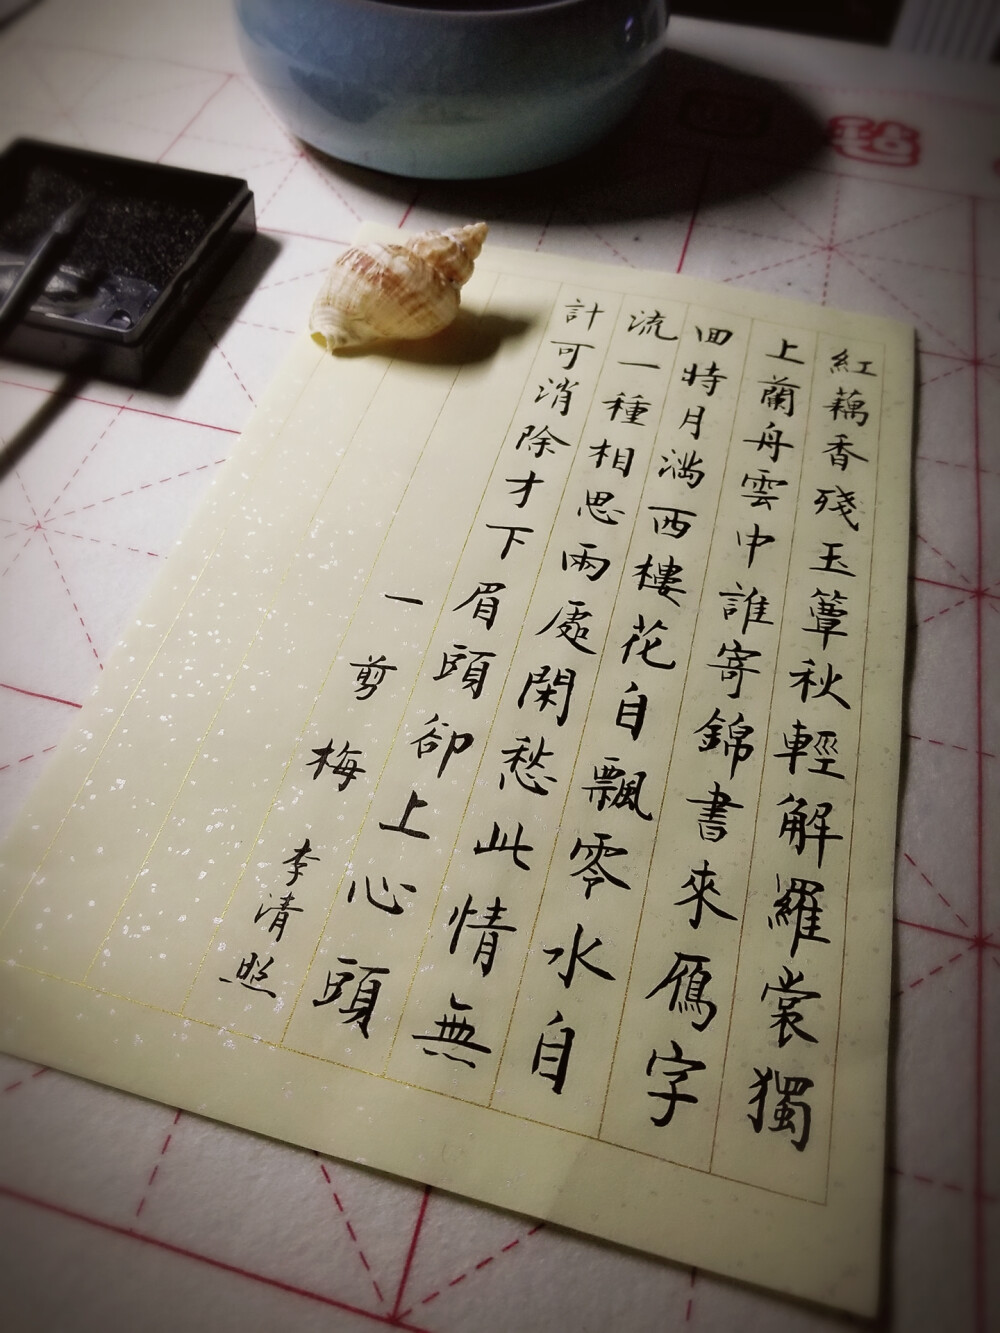 紅藕香殘玉簟秋輕解羅裳獨
上蘭舟雲中誰寄錦書來鴈字
囬時月滿西樓花自飄零水自
流一種相思兩處閑愁此情無
計可消除才下眉頭卻上心頭
一剪梅
李清照
毡